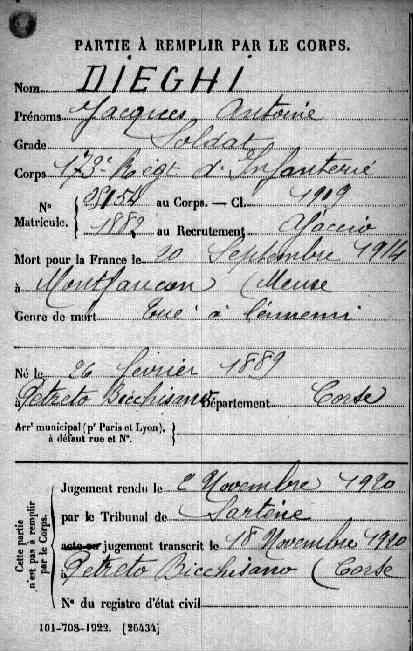 PARTIE À REMPLIR PAR LE CORPS.
Nom DIEGHI
Prénoms Jacques Antoine
Grade Soldat
Corps 173e Régt d'Infanterie
N° Matricule. { au Corps. — Cl. 1909
1882 au Recrutement Ajaccio
Mort pour la France le 20 Septembre 1914
à Montfaucon (Meuse
Genre de mort Tué à l'ennemi
Né le 26 février 1889
à Petreto Bicchisano Département Corse
Arrt municipal (pr Paris et Lyon), }
à défaut rue et N°.
Cette partie n'est pas à remplir par le Corps.
Jugement rendu le 2 Novembre 1920
par le Tribunal de Sartène
acte ou jugement transcrit le 18 Novembre 1920
à Petreto Bicchisano (Corse
N° du registre d'état civil
101-708-1922. [26434]